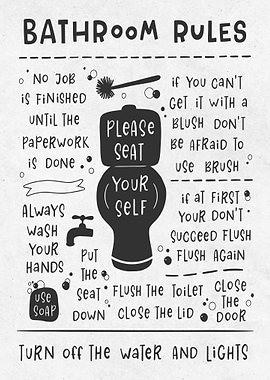 BATHROOM RULES
NO JOB
iS FiNiSHED
UNTiL THE
PAPERWORK
iS DONE
PLEASE
SEAT
YOUR
SELF
if YOU CAN'T
GET iT WiTH A
BLUSH DON'T
BE AFRAiD TO
USE BRUSH
ALWAYS
WASH
YOUR
HANDS
USE
SOAP
if AT FiRST
YOUR DON'T
SUCCEED FLUSH
FLUSH AGAiN
PUT
THE
SEAT
DOWN
FLUSH THE TOiLET
CLOSE THE LiD
CLOSE
THE
DOOR
TURN Off THE WATER AND LiGHTS